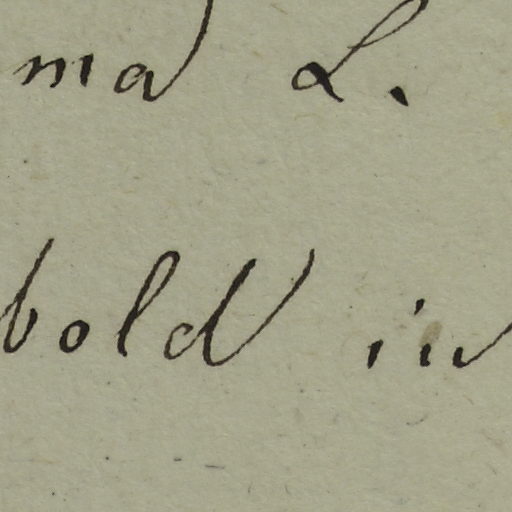 ma L.
bold in